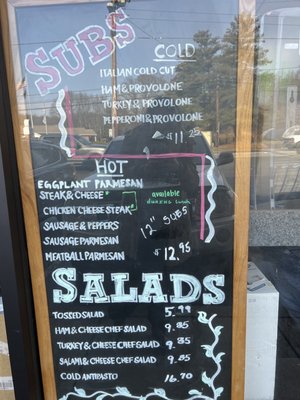 SUBS
COLD
ITALIAN COLD CUT
HAM & PROVOLONE
TURKEY & PROVOLONE
PEPPERONI & PROVOLONE
$11.25
HOT
EGGPLANT PARMESAN
STEAK & CHEESE*
available
CHICKEN CHEESE STEAK*
DURING Lunch
SAUSAGE & PEPPERS
12" SUBS
SAUSAGE PARMESAN
MEATBALL PARMESAN
$12.95
SALADS
TOSSED SALAD 5.99
HAM & CHEESE CHEF SALAD 9.85
TURKEY & CHEESE CHEF SALAD 9.85
SALAMI & CHEESE CHEF SALAD 9.85
COLD ANTIPASTO 16.70